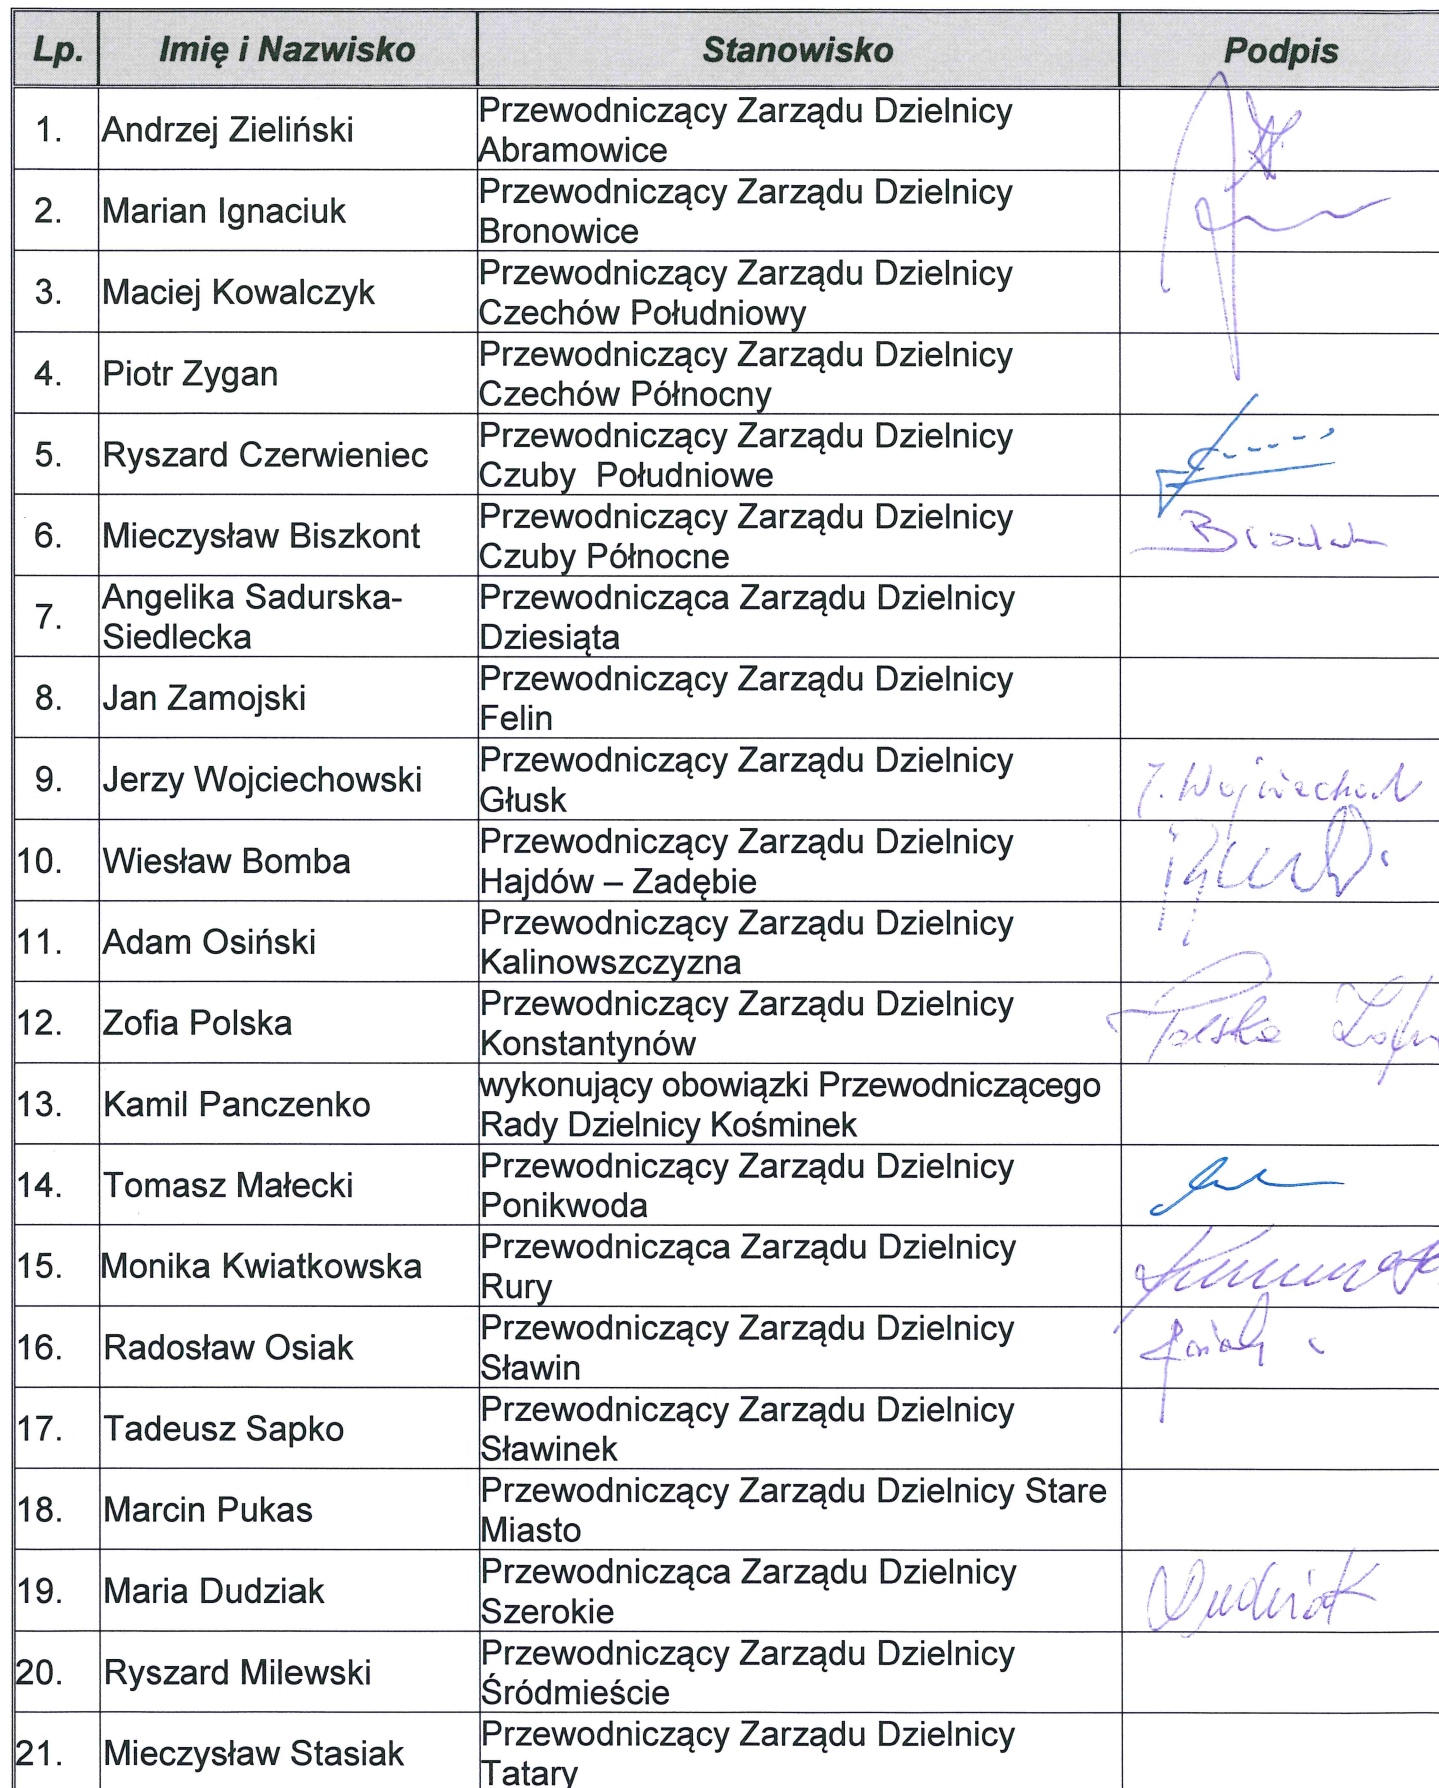 Lp. Imię i Nazwisko Stanowisko Podpis
1. Andrzej Zieliński Przewodniczący Zarządu Dzielnicy
Abramowice
2. Marian Ignaciuk Przewodniczący Zarządu Dzielnicy
Bronowice
3. Maciej Kowalczyk Przewodniczący Zarządu Dzielnicy
Czechów Południowy
4. Piotr Zygan Przewodniczący Zarządu Dzielnicy
Czechów Północny
5. Ryszard Czerwieniec Przewodniczący Zarządu Dzielnicy
Czuby Południowe
6. Mieczysław Biszkont Przewodniczący Zarządu Dzielnicy
Czuby Północne
7. Angelika Sadurska- Przewodnicząca Zarządu Dzielnicy
Siedlecka Dziesiąta
8. Jan Zamojski Przewodniczący Zarządu Dzielnicy
Felin
9. Jerzy Wojciechowski Przewodniczący Zarządu Dzielnicy
Głusk
10. Wiesław Bomba Przewodniczący Zarządu Dzielnicy
Hajdów – Zadębie
11. Adam Osiński Przewodniczący Zarządu Dzielnicy
Kalinowszczyzna
12. Zofia Polska Przewodniczący Zarządu Dzielnicy Polska
Konstantynów
13. Kamil Panczenko wykonujący obowiązki Przewodniczącego
Rady Dzielnicy Kośminek
14. Tomasz Małecki Przewodniczący Zarządu Dzielnicy
Ponikwoda
15. Monika Kwiatkowska Przewodnicząca Zarządu Dzielnicy
Rury
16. Radosław Osiak Przewodniczący Zarządu Dzielnicy
Sławin
17. Tadeusz Sapko Przewodniczący Zarządu Dzielnicy
Sławinek
18. Marcin Pukas Przewodniczący Zarządu Dzielnicy Stare
Miasto
19. Maria Dudziak Przewodnicząca Zarządu Dzielnicy Dudziak
Szerokie
20. Ryszard Milewski Przewodniczący Zarządu Dzielnicy
Śródmieście
21. Mieczysław Stasiak Przewodniczący Zarządu Dzielnicy
Tatary